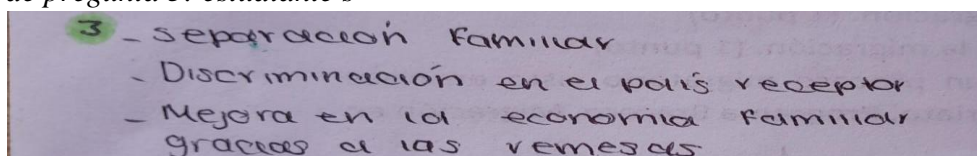 de pregunta 3. estudiante 8
3 - Separación Familiar
- Discriminación en el país receptor
- Mejora en la economía Familiar
gracias a las remesas